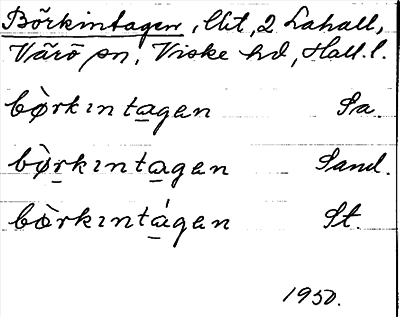 Börkintagen, lht, 2 Lahall,
Värö sn, Viske hd, Hall. l.
bø̀rkɪntagen Sa.
bø̀rkɪntagen Sand.
bø̀rkɪntágen St.
1950.